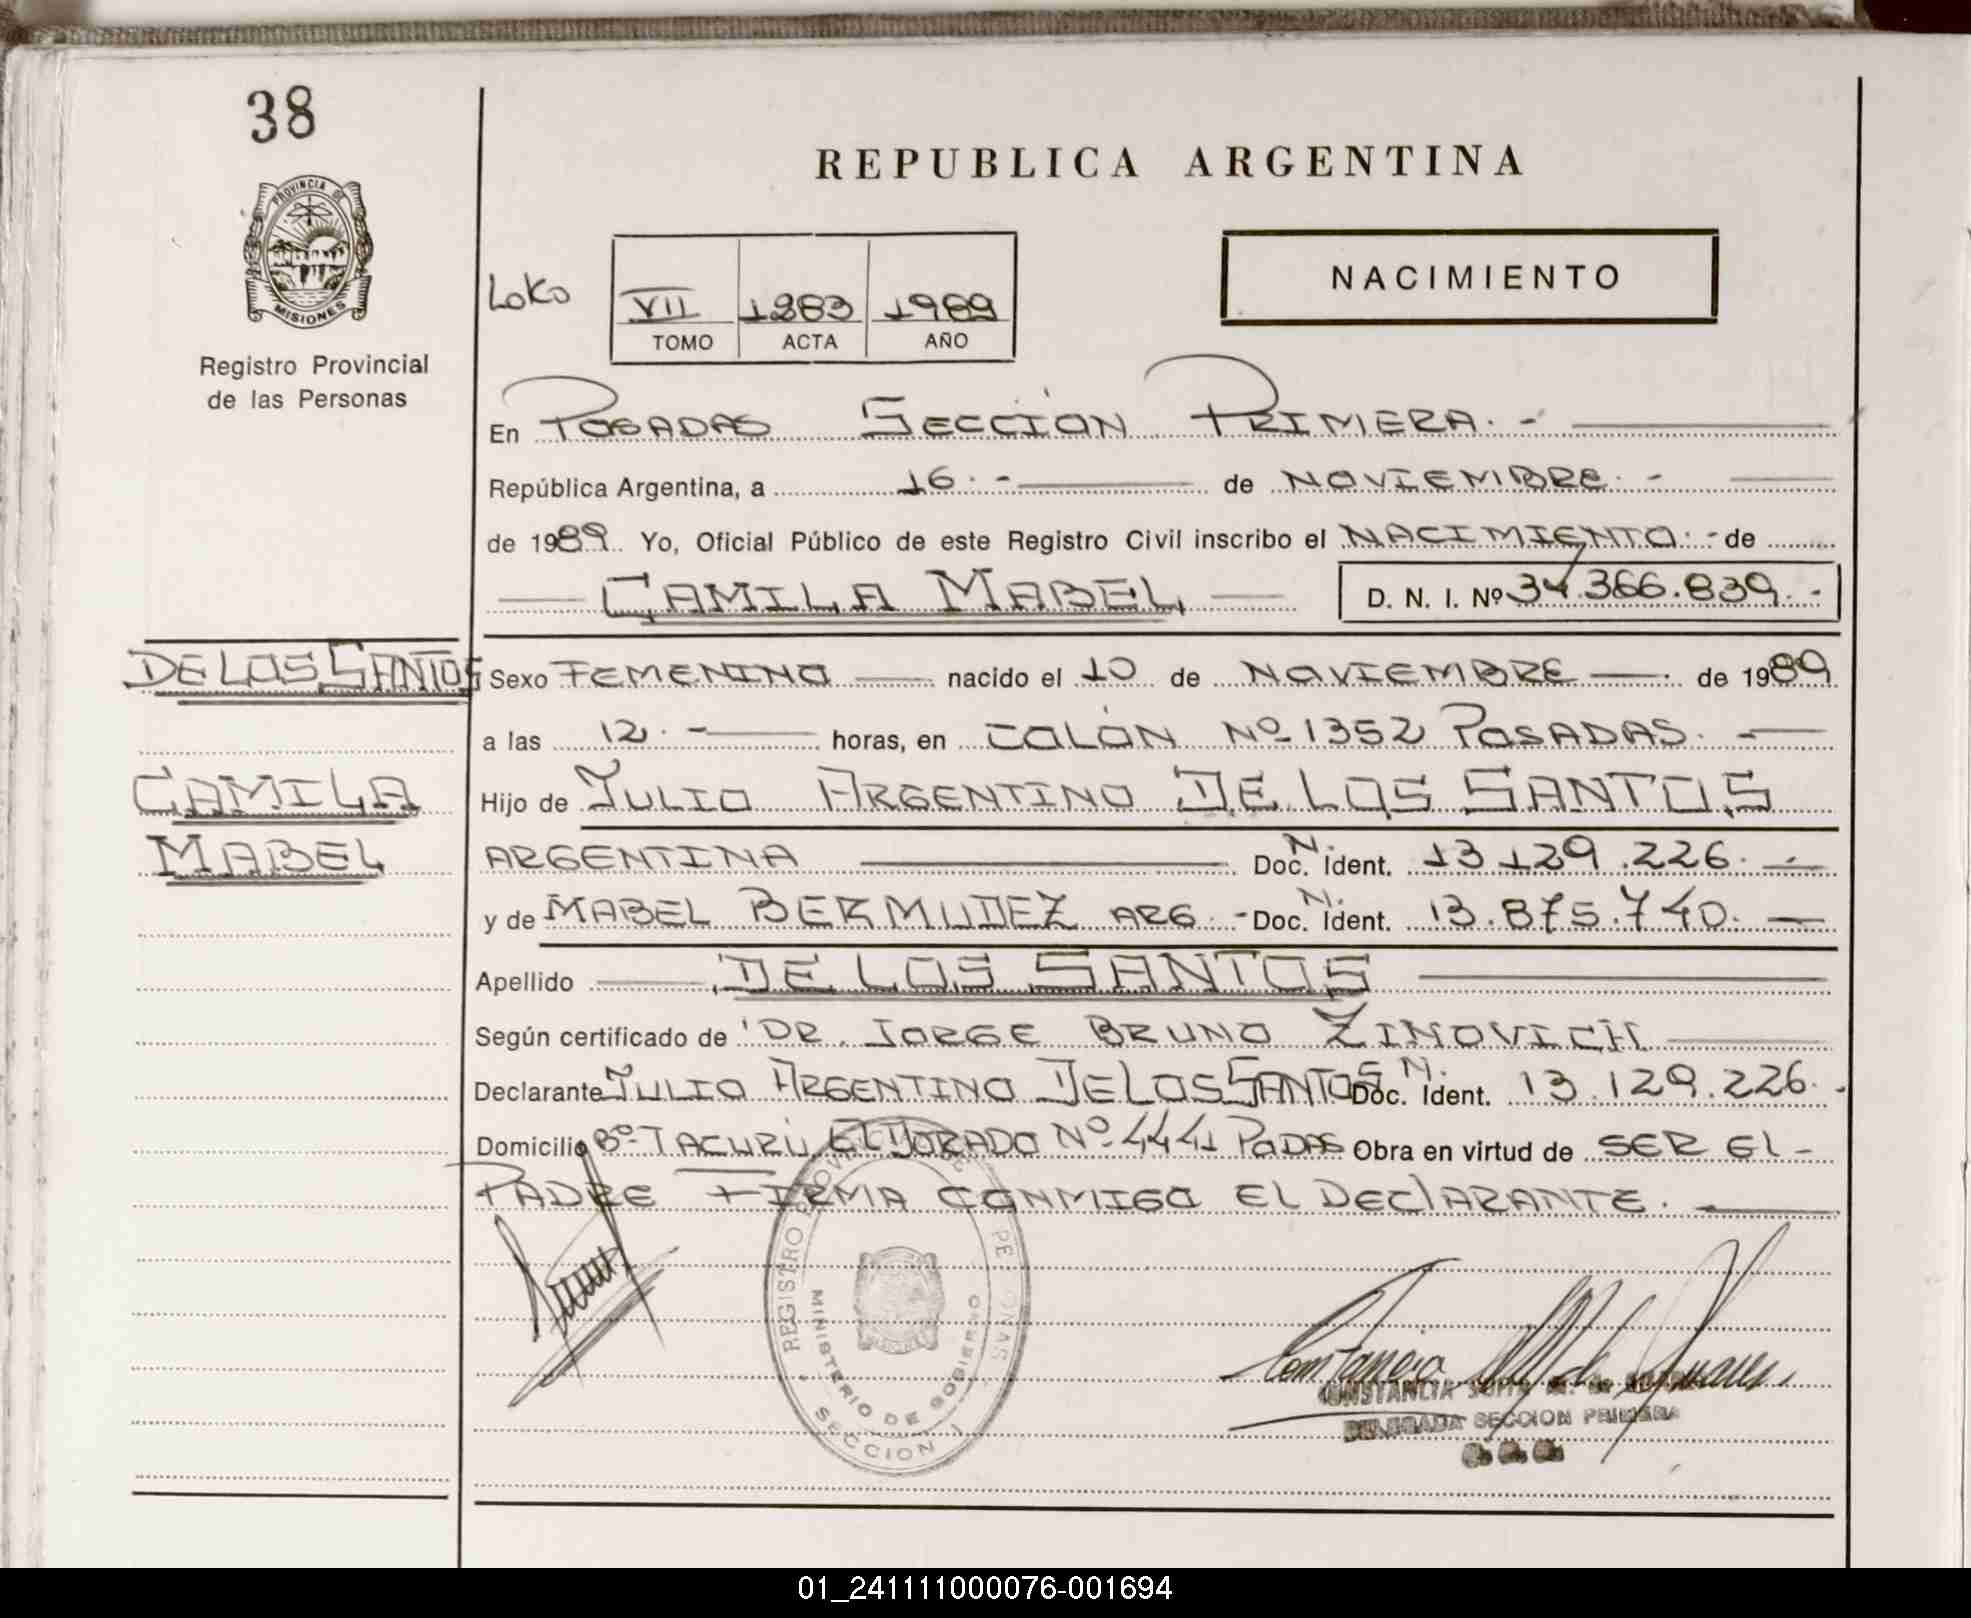 38
REPUBLICA ARGENTINA
PROVINCIA DE
MISIONES
Registro Provincial
de las Personas
NACIMIENTO
VII 1283 1989
TOMO ACTA AÑO
En POSADAS SECCIÓN PRIMERA.-
República Argentina, a 16.- de NOVIEMBRE.-
de 1989. Yo, Oficial Público de este Registro Civil inscribo el NACIMIENTO.- de
CAMILA MABEL D. N. I. Nº 34.366.839.-
DE LOS SANTOS
CAMILA
MABEL
Sexo FEMENINO nacido el 10 de NOVIEMBRE de 1989
a las 12.- horas, en COLÓN Nº 1352 POSADAS.-
Hijo de JULIO ARGENTINO DE LOS SANTOS
ARGENTINA Doc. N. Ident. 13.129.226.-
y de MABEL BERMUDEZ ARG.- Doc. N. Ident. 13.875.740.
Apellido DE LOS SANTOS
Según certificado de DR. JORGE BRUNO ZINOVICH
Declarante JULIO ARGENTINO DE LOS SANTOS Doc. N. Ident. 13.129.226.-
Domicilio Bº TACURÚ, ELDORADO Nº 4441 PDAS Obra en virtud de SER EL-
PADRE FIRMA CONMIGO EL DECLARANTE.
REGISTRO PROVINCIAL DE PERSONAS
MINISTERIO DE GOBIERNO
SECCION 1
CONSTANCIA
DELEGADA SECCION PRIMERA
01_241111000076-001694